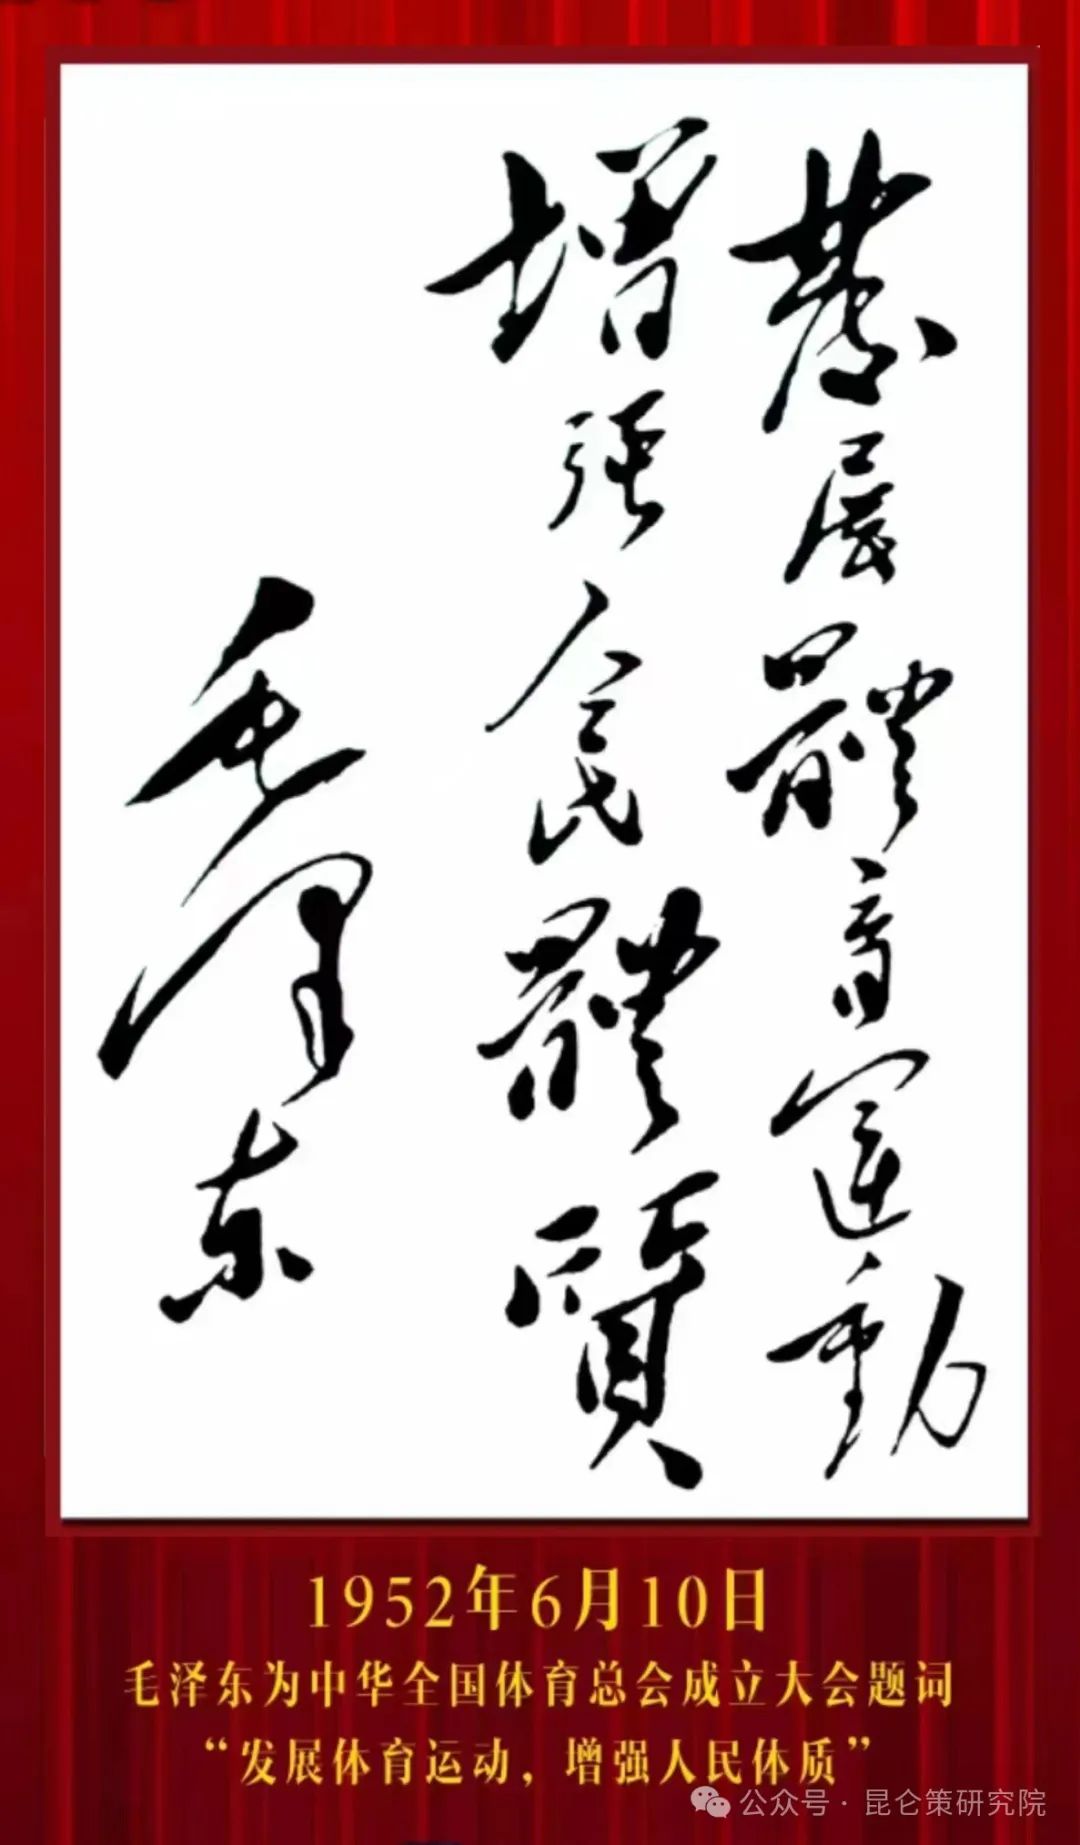 發展體育運動
增强人民體質
毛泽东
1952年6月10日
毛泽东为中华全国体育总会成立大会题词
“发展体育运动，增强人民体质”
公众号·昆仑策研究院